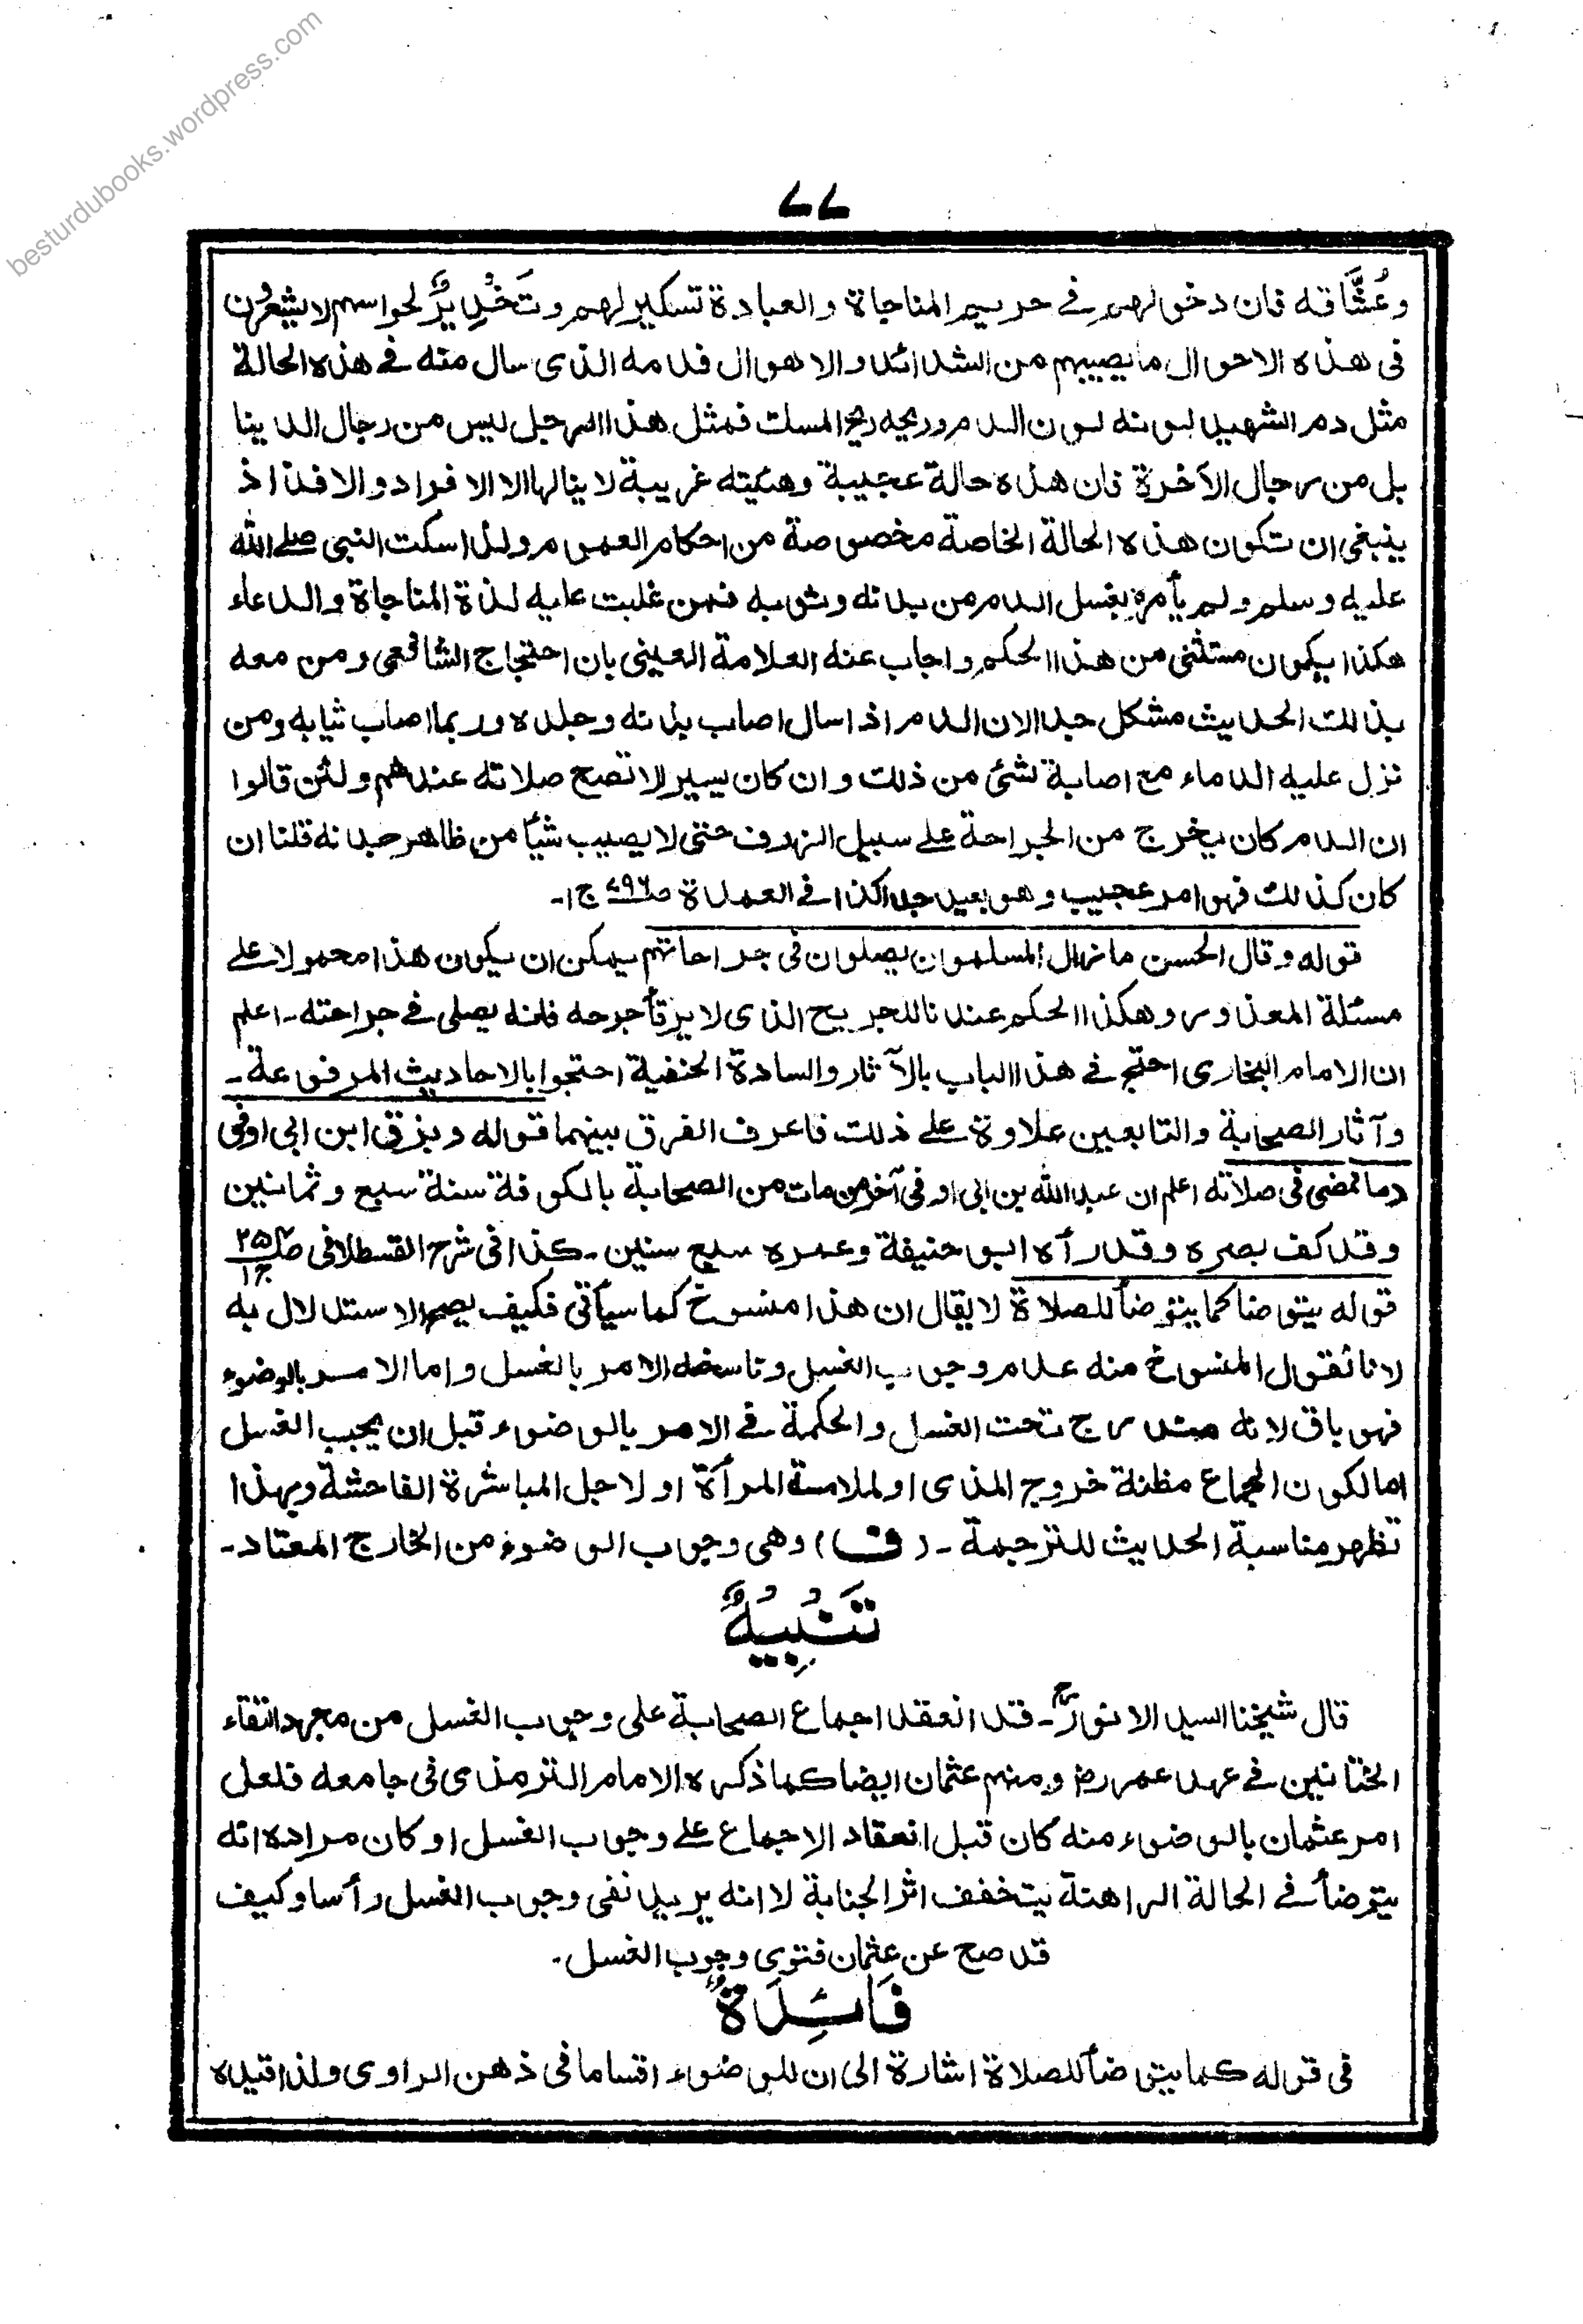 besturdubooks.wordpress.com
۷۷
وعُشَّاقه فان دخولهم في حريم المناجاة والعبادة تسكير لهم وتَخْدِيرٌ لحواسهم لا يشعرون
في هذه الاحوال ما يصيبهم من الشدائد والاهوال فدمه الذى سال منه في هذه الحالة
مثل دم الشهيد لونه لون الدم وريحه ريح المسك فمثل هذا الرجل ليس من رجال الدنيا
بل من رجال الآخرة فان هذه حالة عجيبة وهيئته غريبة لا ينالها الا الافراد والافذاذ
ينبغي ان تكون هذه الحالة الخاصة مخصوصة من احكام العموم ولذا سكت النبي صلى الله
عليه وسلم ولم يأمره بغسل الدم من بدنه وثوبه فمن غلبت عليه لذة المناجاة والدعاء
هكذا يكون مستثنى من هذا الحكم واجاب عنه العلامة العيني بان احتجاج الشافعي ومن معه
بذلك الحديث مشكل جدا لان الدم اذا سال اصاب بدنه وجلده وربما اصاب ثيابه ومن
نزل عليه الدماء مع اصابة لشئ من ذلك وان كان يسيرا لا تصح صلاته عندهم ولئن قالوا
ان الدم كان يخرج من الجراحة على سبيل الزرف حتى لا يصيب شيأ من ظاهر بدنه قلنا ان
كان كذلك فهو امر عجيب وهو بعيد جدا كذا في العمدة ص۷۹۶ ج۱-
قوله وقال الحسن ما زال المسلمون يصلون في جراحاتهم يمكن ان يكون هذا محمولا على
مسئلة المعذور وهكذا الحكم عندنا للجريح الذى لا يرقأ جرحه فانه يصلى في جراحته- اعلم
ان الامام البخارى احتج في هذا الباب بالآثار والسادة الحنفية احتجوا بالاحاديث المرفوعة-
وآثار الصحابة والتابعين علاوة على ذلك فاعرف الفرق بينهما قوله وبزق ابن ابى اوفى
دما فمضى في صلاته اعلم ان عبد الله بن ابى اوفى آخر من مات من الصحابة بالكوفة سنة سبع وثمانين
وقد كف بصره وقد رآه ابو حنيفة وعمره سبع سنين- كذا في شرح القسطلانى ص۲۵۲ ج۱
قوله يتوضا كما يتوضأ للصلاة لا يقال ان هذا منسوخ كما سيأتى فكيف يصح الاستدلال به
لانا نقول المنسوخ منه عدم وجوب الغسل وناسخه الامر بالغسل واما الامر بالوضوء
فهو باق لانه مندرج تحت الغسل والحكمة في الامر بالوضوء قبل ان يجب الغسل
اما لكون الجماع مظنة خروج المذى او لملامسة المرأة او لاجل المباشرة الفاحشة وبهذا
تظهر مناسبة الحديث للترجمة- (ف) وهى وجوب الوضوء من الخارج المعتاد-
تَنْبِيْهٌ
قال شيخنا السيد الانورؒ- قد انعقد اجماع الصحابة على وجوب الغسل من مجرد التقاء
الختانين في عهد عمر رض ومنهم عثمان ايضا كما ذكره الامام الترمذى في جامعه فلعل
امر عثمان بالوضوء منه كان قبل انعقاد الاجماع على وجوب الغسل او كان مراده انه
يتوضأ في الحالة الراهنة يتخفف اثر الجنابة لا انه يريد نفى وجوب الغسل رأسا وكيف
قد صح عن عثمان فتوى وجوب الغسل-
فَائِدَةٌ
في قوله كما يتوضأ للصلاة اشارة الى ان للوضوء اقساما في ذهن الراوى ولذا قيده